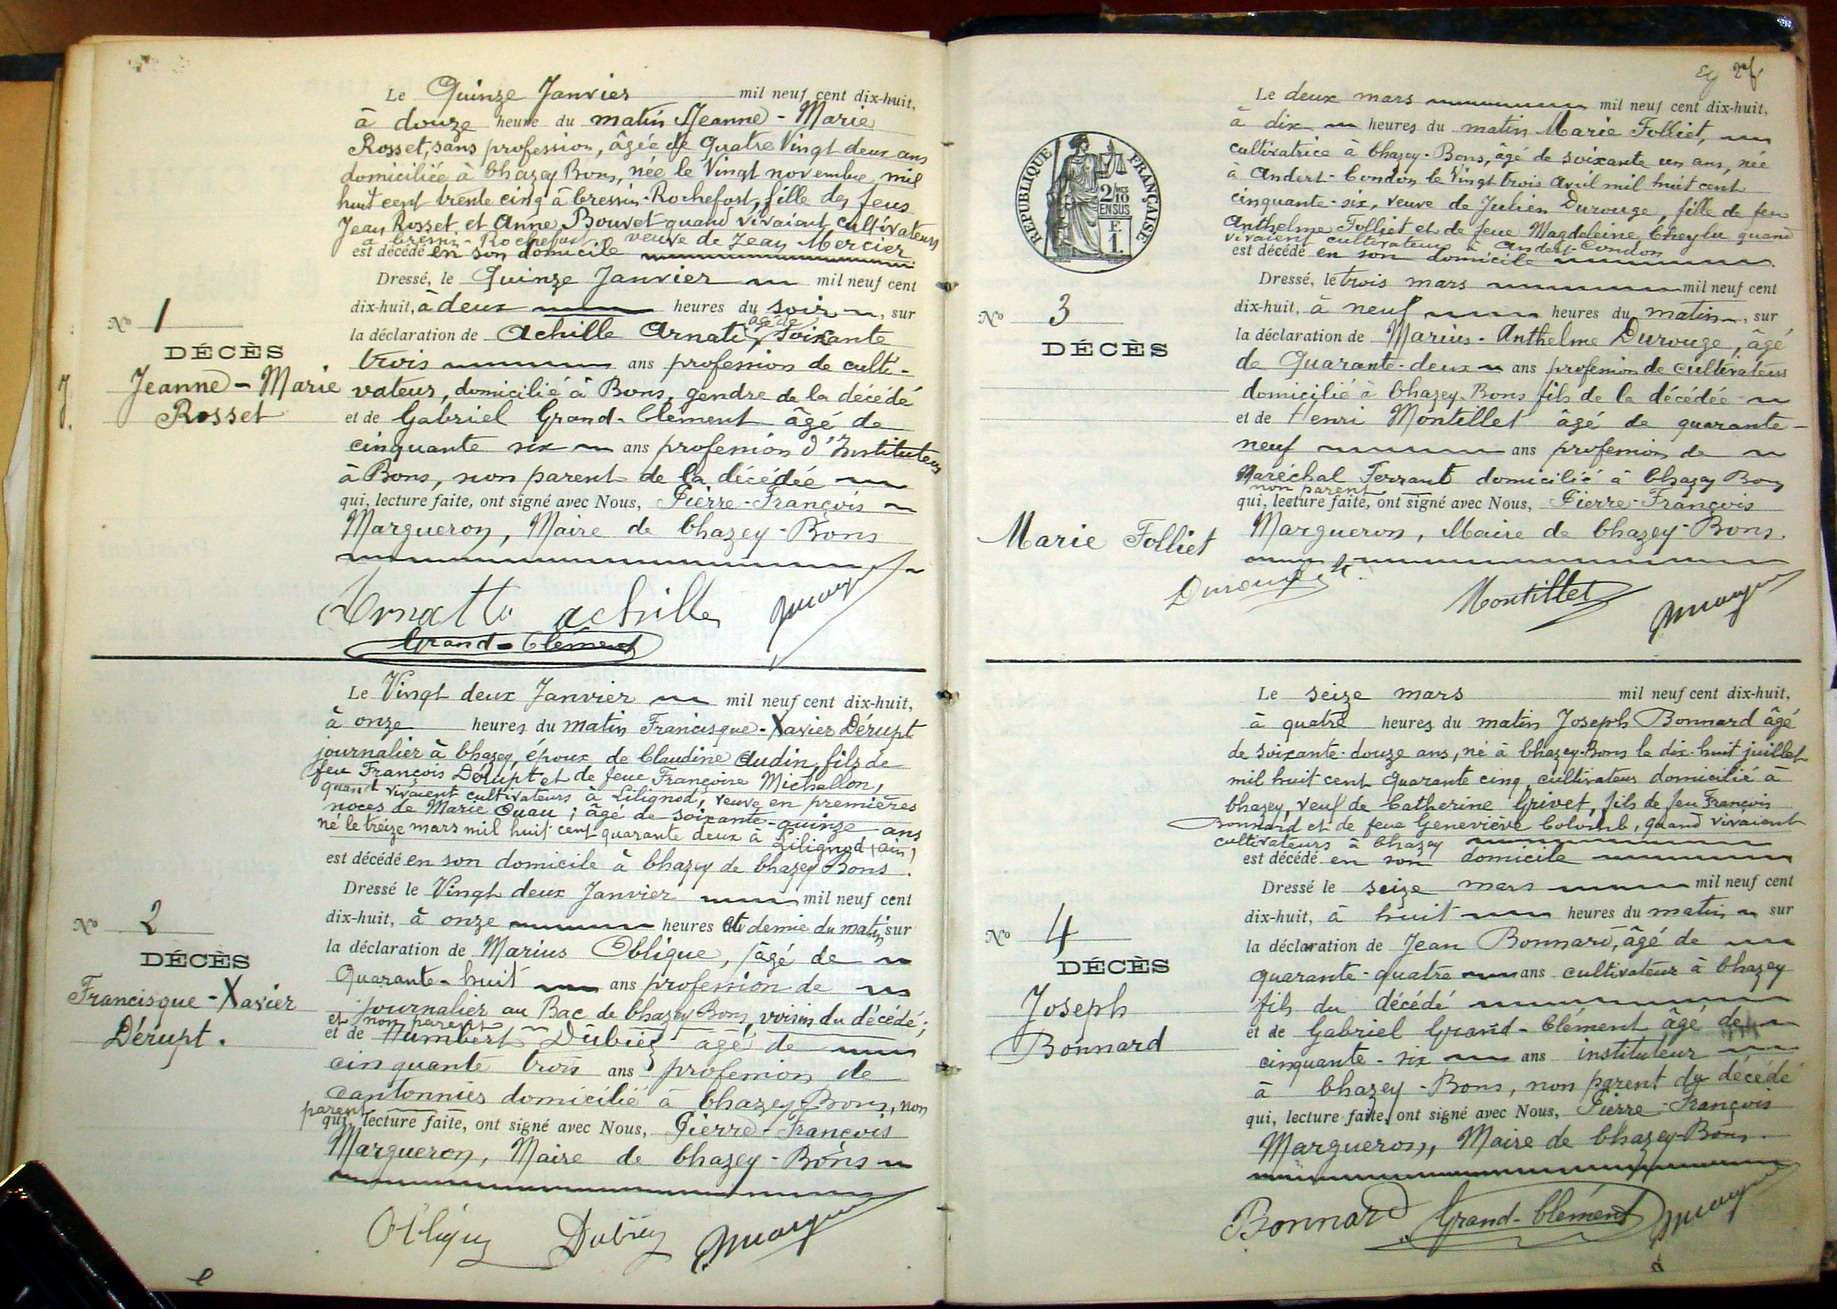 Le Quinze Janvier mil neuf cent dix-huit,
à douze heure du matin Jeanne-Marie
Rosset, sans profession, âgée de Quatre Vingt deux ans
domiciliée à Chazey Bons, née le Vingt novembre mil
huit cent trente cinq à Cressin-Rochefort, fille des feus
Jean Rosset et Anne Bouvet quand vivaient cultivateurs
à Cressin-Rochefort, veuve de Jean Mercier
est décédé en son domicile
Dressé, le Quinze Janvier mil neuf cent
dix-huit, à deux heures du soir, sur
la déclaration de Achille Arnati, âgé de Soixante
trois ans profession de culti-
vateur, domicilié à Bons, gendre de la décédé
et de Gabriel Grand-Clément âgé de
cinquante six ans profession d'Instituteur
à Bons, non parent de la décédée
qui, lecture faite, ont signé avec Nous, Pierre-François
Margueron, Maire de Chazey-Bons
Nº 1
DÉCÈS
Jeanne-Marie
Rosset
achille
Grand-Clément
Le Vingt deux Janvier mil neuf cent dix-huit,
à onze heures du matin Francisque-Xavier Dérupt
journalier à Chazey, époux de Claudine Audin, fils de
feu François Dérupt et de feue Françoise Michallon,
quant vivaient cultivateurs à Lilignod, veuve en premières
noces de Marie Cuau; âgé de soixante-quinze ans
né le treize mars mil huit cent quarante deux à Lilignod (Ain)
est décédé en son domicile à Chazey de Chazey Bons.
Dressé le Vingt deux Janvier mil neuf cent
dix-huit, à onze heures et demie du matin sur
la déclaration de Marius Oblique, âgé de
Quarante-huit ans profession de
journalier au Bac de Chazey Bons, voisin du décédé;
et non parent
et de Humbert Dubiez âgé de
cinquante trois ans profession de
cantonnier domicilié à Chazey-Bons, non
parent
qui, lecture faite, ont signé avec Nous, Pierre-François
Margueron, Maire de Chazey-Bons
Nº 2
DÉCÈS
Francisque-Xavier
Dérupt.
Le deux mars mil neuf cent dix-huit,
à dix heures du matin Marie Folliet,
cultivatrice à Chazey-Bons, âgé de soixante un ans, née
à Andert-Condon le Vingt trois Avril mil huit cent
cinquante-six, veuve de Julien Durouge, fille de feu
Anthelme Folliet et de feue Magdeleine Cheylu quand
vivaient cultivateurs à Andert-Condon
est décédé en son domicile
Dressé, le trois mars mil neuf cent
dix-huit, à neuf heures du matin, sur
la déclaration de Marius-Anthelme Durouge, âgé
de Quarante-deux ans profession de cultivateur
domicilié à Chazey-Bons fils de la décédée
et de Henri Montillet âgé de quarante-
neuf ans profession de
Maréchal Ferrant domicilié à Chazey Bons
non parent
qui, lecture faite, ont signé avec Nous, Pierre-François
Margueron, Maire de Chazey-Bons.
RÉPUBLIQUE FRANÇAISE
2/10
EN SUS
F.
1
Nº 3
DÉCÈS
Marie Folliet
Montillet
Le seize mars mil neuf cent dix-huit,
à quatre heures du matin Joseph Bonnard âgé
de soixante-douze ans, né à Chazey-Bons le dix-huit juillet
mil huit cent quarante cinq cultivateur domicilié à
Chazey, veuf de Catherine Grivet, fils de feu François
Bonnard et de feue Geneviève Colomb, quand vivaient
cultivateurs à Chazey
est décédé en son domicile
Dressé le seize mars mil neuf cent
dix-huit, à huit heures du matin sur
la déclaration de Jean Bonnard, âgé de
quarante-quatre ans cultivateur à Chazey
fils du décédé
et de Gabriel Grand-Clément âgé de
cinquante-six ans instituteur
à Chazey-Bons, non parent du décédé
qui, lecture faite, ont signé avec Nous, Pierre-François
Margueron, Maire de Chazey-Bons.
Nº 4
DÉCÈS
Joseph
Bonnard
Bonnard Grand-Clément